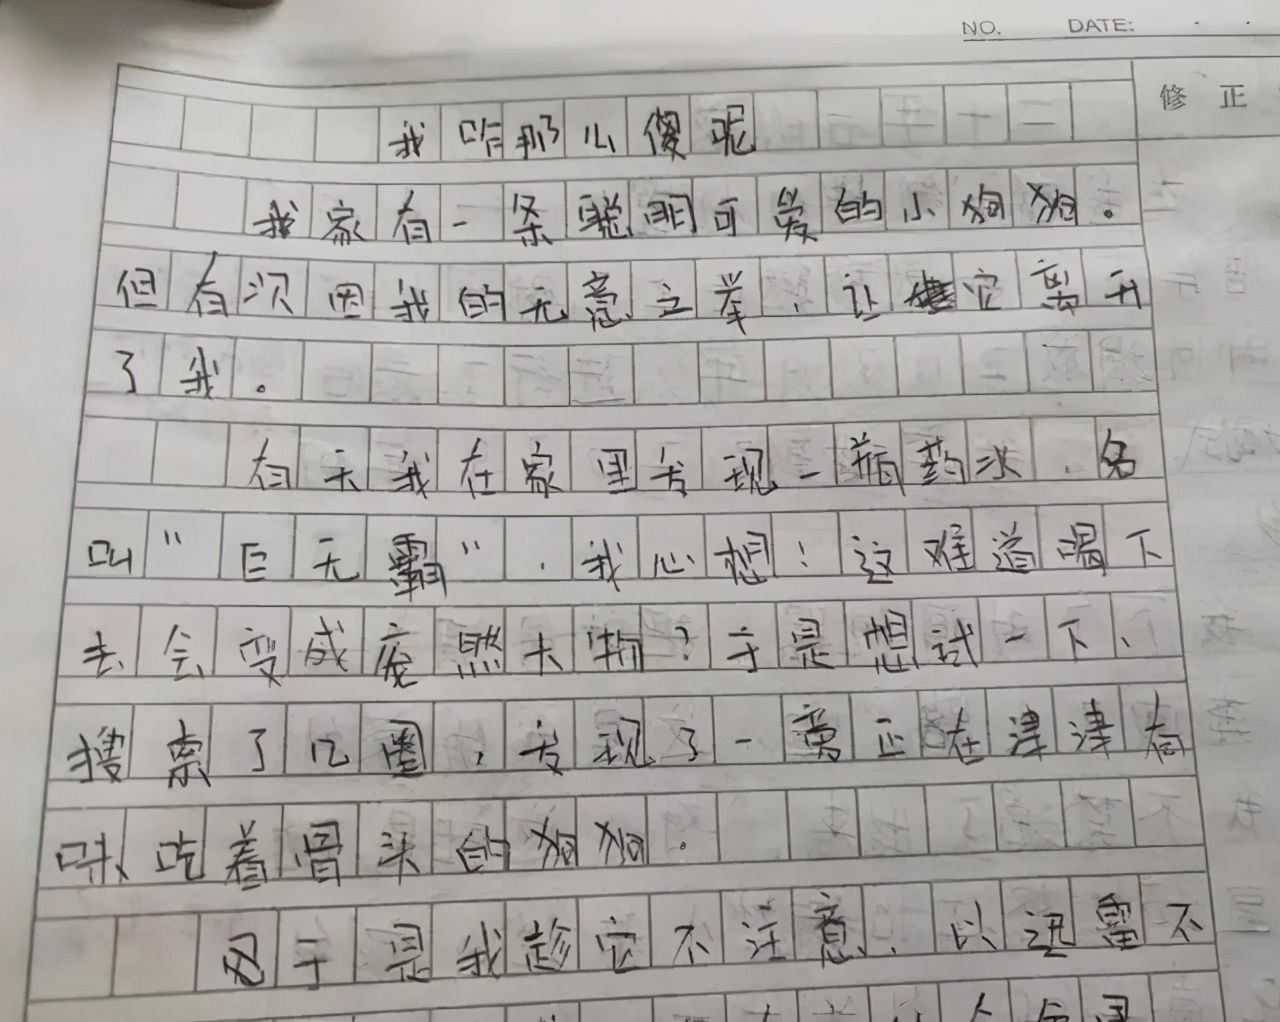 NO. DATE:
修 正
我咋那么傻呢
我家有一条聪明可爱的小狗狗。
但有次因我的无意之举,让它离开
了我。
有天我在家里发现一瓶药水,名
叫"巨无霸",我心想:这难道喝下
去会变成庞然大物?于是想试一下,
搜索了几圈,发现了一旁正在津津有
味吃着骨头的狗狗。
于是我趁它不注意,以迅雷不